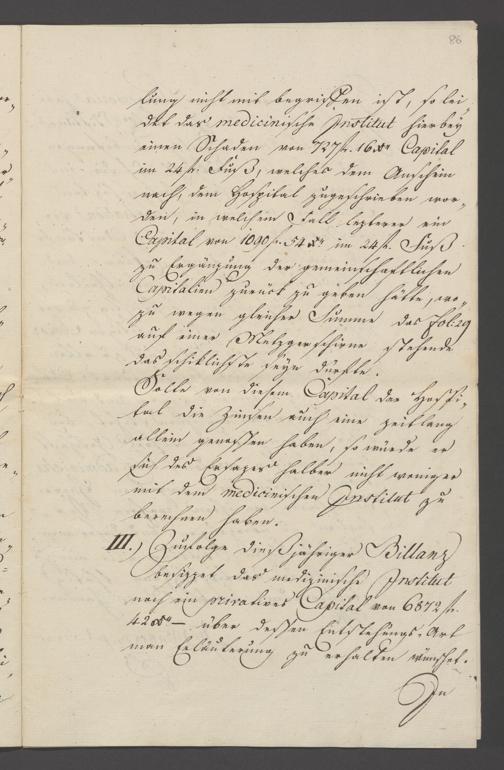 86
lung nicht mit begriffen ist, so lei-
det das medicinische Institut hierbey
einen Schaden von 727 f. 16 xr Capital
im 24 f. Fuß, welches dem Anschein
nach, dem Hospital zugeschrieben wor-
den, in welchem Fall lezterer ein
Capital von 1090 f. 54 xr im 24 f. Fuß
zu Ergänzung der gemeinschaftlichen
Capitalien zurück zu geben hätte, wo-
zu wegen gleicher Summe das fol: 29
auf einer Metzgerschirne stehende
das schiklichste seyn dürfte.
Solte von diesem Capital der Hospi-
tal die Zinsen auch eine zeitlang
allein genossen haben, so würde er
sich des Ersazes halber nicht weniger
mit dem medicinischen Institut zu
berechnen haben.
III.) Zufolge dießjähriger Billanz
besizzet das medizinische Institut
noch ein privatives Capital von 6872 f.
42 xr — über dessen Entstehungs-Art
man Erläuterung zu erhalten wünschet.
In